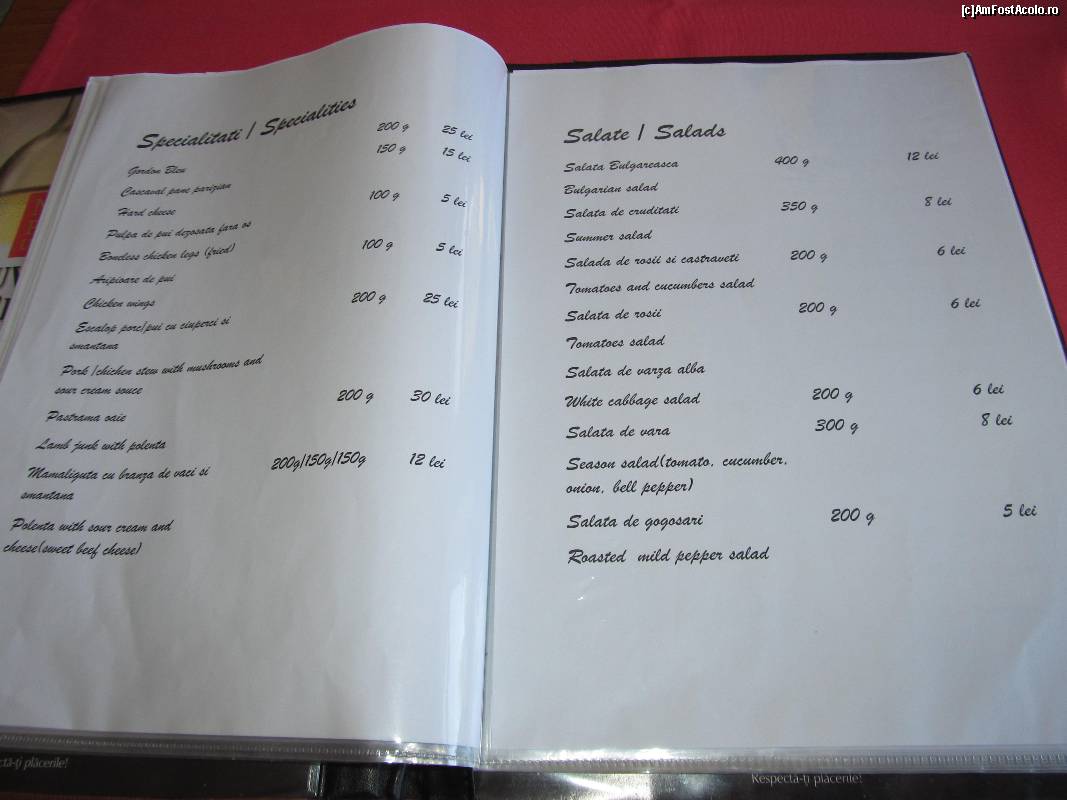 [c]AmFostAcolo.ro
Specialitati / Specialities
Gordon Bleu 200 g 25 lei
Cascaval pane parizian 150 g 15 lei
Hard cheese
Pulpa de pui dezosata fara os 100 g 5 lei
Boneless chicken legs (fried)
Aripioare de pui 100 g 5 lei
Chicken wings
Escalop porc/pui cu ciuperci si 200 g 25 lei
smantana
Pork /chichen stew with mushrooms and
sour cream souce
Pastrama oaie 200 g 30 lei
Lamb junk with polenta
Mamaliguta cu branza de vaci si 200g/150g/150g 12 lei
smantana
Polenta with sour cream and
cheese(sweet beef cheese)
Salate / Salads
Salata Bulgareasca 400 g 12 lei
Bulgarian salad
Salata de cruditati 350 g 8 lei
Summer salad
Salada de rosii si castraveti 200 g 6 lei
Tomatoes and cucumbers salad
Salata de rosii 200 g 6 lei
Tomatoes salad
Salata de varza alba
White cabbage salad 200 g 6 lei
Salata de vara 300 g 8 lei
Season salad(tomato, cucumber,
onion, bell pepper)
Salata de gogosari 200 g 5 lei
Roasted mild pepper salad
plăcerile!
Respectă-ți plăcerile!